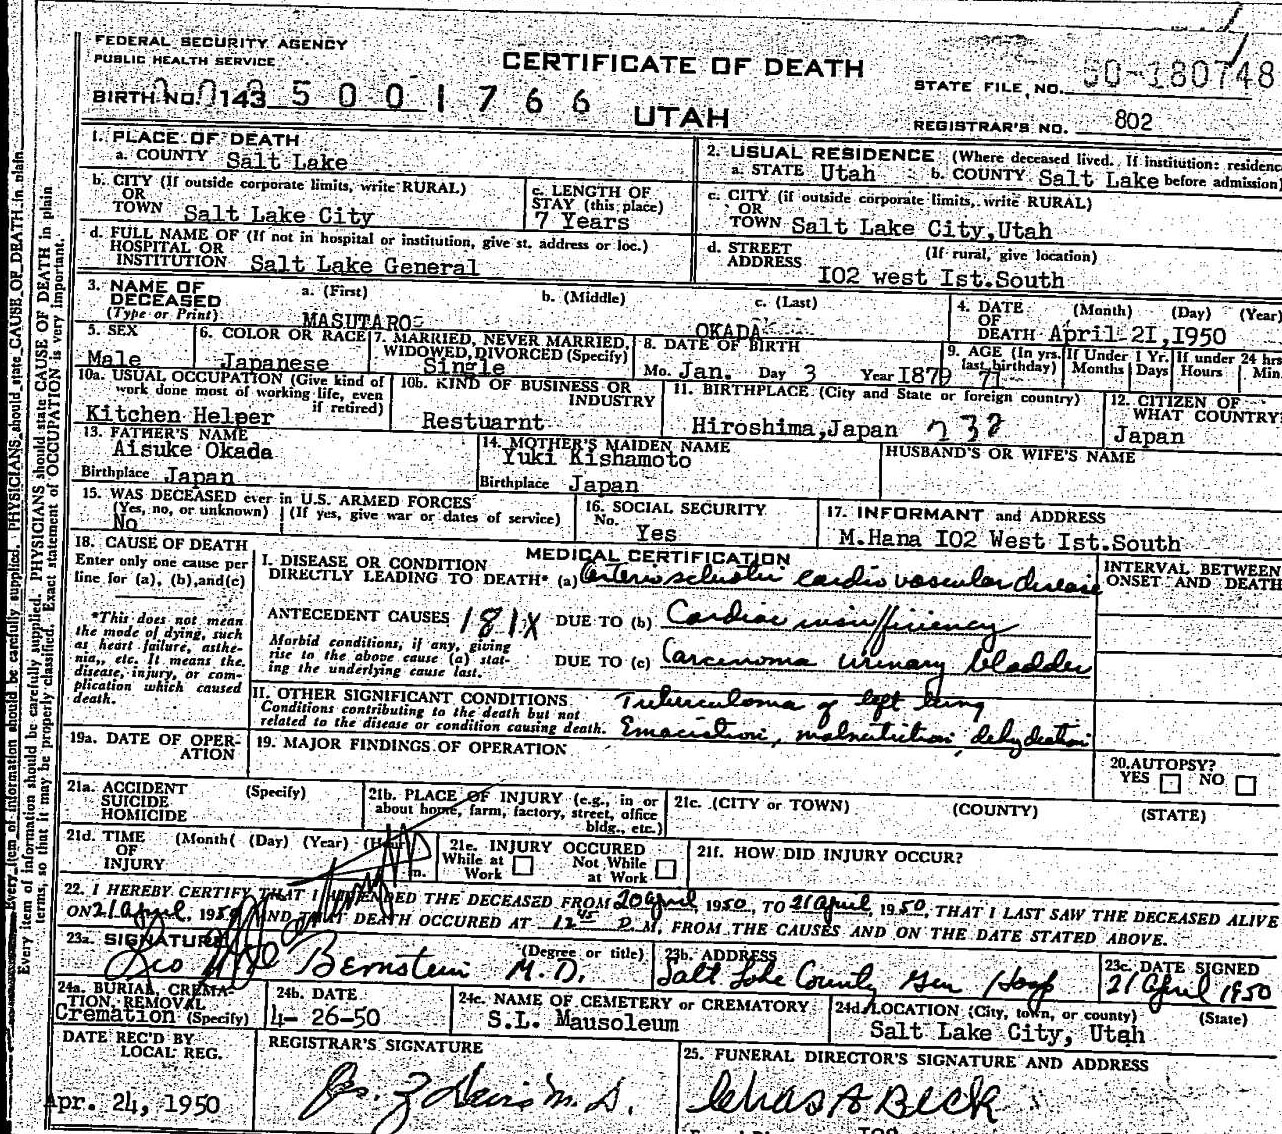 FEDERAL SECURITY AGENCY
PUBLIC HEALTH SERVICE
CERTIFICATE OF DEATH
STATE FILE NO. 50-180748
BIRTH NO. 143 5 0 0 1 7 6 6
UTAH
REGISTRAR'S NO. 802
1. PLACE OF DEATH
a. COUNTY Salt Lake
2. USUAL RESIDENCE (Where deceased lived. If institution: residence
a. STATE Utah b. COUNTY Salt Lake before admission)
b. CITY (If outside corporate limits, write RURAL)
OR
TOWN Salt Lake City
c. LENGTH OF
STAY (this place)
7 Years
c. CITY (if outside corporate limits, write RURAL)
OR
TOWN Salt Lake City,Utah
d. FULL NAME OF (If not in hospital or institution, give st. address or loc.)
HOSPITAL OR
INSTITUTION Salt Lake General
d. STREET (If rural, give location)
ADDRESS
I02 west Ist.South
3. NAME OF
DECEASED
(Type or Print)
a. (First) b. (Middle) c. (Last)
MASUTARO OKADA
4. DATE (Month) (Day) (Year)
OF
DEATH April 2I,I950
5. SEX
Male
6. COLOR OR RACE
Japanese
7. MARRIED, NEVER MARRIED,
WIDOWED, DIVORCED (Specify)
Single
8. DATE OF BIRTH
Mo. Jan. Day 3 Year I879
9. AGE (In yrs. last birthday) 71
If Under 1 Yr. Months Days
If under 24 hrs Hours Min.
10a. USUAL OCCUPATION (Give kind of
work done most of working life, even
if retired)
Kitchen Helper
10b. KIND OF BUSINESS OR
INDUSTRY
Restuarnt
11. BIRTHPLACE (City and State or foreign country)
Hiroshima,Japan 232
12. CITIZEN OF
WHAT COUNTRY
Japan
13. FATHER'S NAME
Aisuke Okada
Birthplace Japan
14. MOTHER'S MAIDEN NAME
Yuki Kishamoto
Birthplace Japan
HUSBAND'S OR WIFE'S NAME
15. WAS DECEASED ever in U.S. ARMED FORCES
(Yes, no, or unknown) (If yes, give war or dates of service)
No
16. SOCIAL SECURITY
No.
Yes
17. INFORMANT and ADDRESS
M.Hana I02 West Ist.South
18. CAUSE OF DEATH
Enter only one cause per
line for (a), (b), and (c)
*This does not mean
the mode of dying, such
as heart failure, asthe-
nia, etc. It means the
disease, injury, or com-
plication which caused
death.
MEDICAL CERTIFICATION
I. DISEASE OR CONDITION
DIRECTLY LEADING TO DEATH* (a) Arteriosclerotic cardiovascular disease
INTERVAL BETWEEN
ONSET AND DEATH
ANTECEDENT CAUSES 181X DUE TO (b) Cardiac insufficiency
Morbid conditions, if any, giving
rise to the above cause (a) stat-
ing the underlying cause last.
DUE TO (c) Carcinoma urinary bladder
II. OTHER SIGNIFICANT CONDITIONS
Conditions contributing to the death but not
related to the disease or condition causing death.
Tuberculoma of left lung
Emaciation, malnutrition, dehydration
19a. DATE OF OPER-
ATION
19. MAJOR FINDINGS OF OPERATION
20. AUTOPSY?
YES NO
21a. ACCIDENT (Specify)
SUICIDE
HOMICIDE
21b. PLACE OF INJURY (e.g., in or
about home, farm, factory, street, office
bldg., etc.)
21c. (CITY or TOWN) (COUNTY) (STATE)
21d. TIME (Month) (Day) (Year) (Hour)
OF
INJURY m.
21e. INJURY OCCURED
While at Work Not While at Work
21f. HOW DID INJURY OCCUR?
22. I HEREBY CERTIFY THAT I ATTENDED THE DECEASED FROM 20 April, 1950, TO 21 April, 1950, THAT I LAST SAW THE DECEASED ALIVE
ON 21 April, 1950 AND THAT DEATH OCCURED AT 12 45 P. M, FROM THE CAUSES AND ON THE DATE STATED ABOVE.
23a. SIGNATURE (Degree or title)
Leo Bernstein M.D.
23b. ADDRESS
Salt Lake County Gen Hosp
23c. DATE SIGNED
21 April 1950
24a. BURIAL, CREMA-
TION, REMOVAL
Cremation (Specify)
24b. DATE
4- 26-50
24c. NAME OF CEMETERY or CREMATORY
S.L. Mausoleum
24d. LOCATION (City, town, or county) (State)
Salt Lake City, Utah
DATE REC'D BY
LOCAL REG.
Apr. 24, 1950
REGISTRAR'S SIGNATURE
M.D.
25. FUNERAL DIRECTOR'S SIGNATURE AND ADDRESS
Chas A Beck
Every item of information should be carefully supplied. PHYSICIANS should state CAUSE OF DEATH in plain
Every item of information should be carefully supplied. PHYSICIANS should state CAUSE OF DEATH in plain
terms, so that it may be properly classified. Exact statement of OCCUPATION is very important.